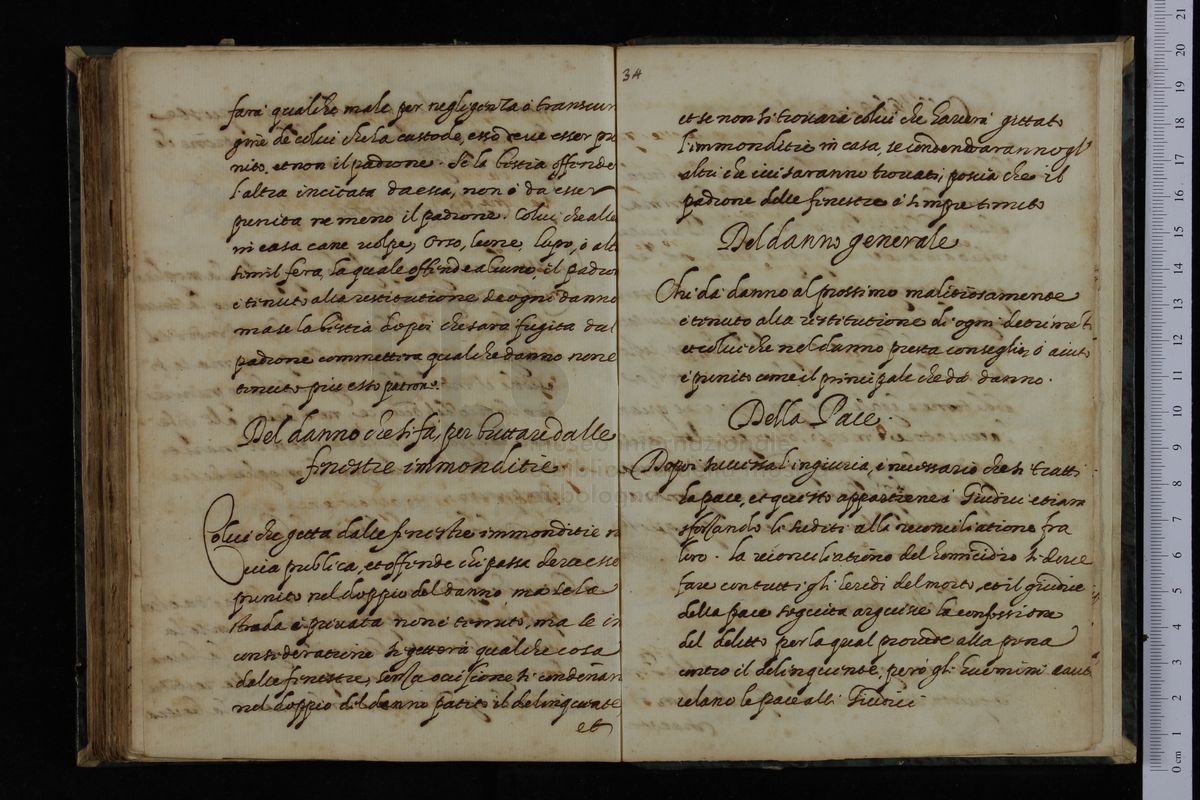 farà qualche male per negligenza ò transcur
gine de colui che la custode, esso deve esser pu
nito, et non il padrone. Se la bestia offende
l'altra incitata da essa, non è da esser
punita ne meno il padrone. Colui che alle
in casa cane volpe, Orso, leone, lupo, ò alt
simil fera, la quale offende alcuno, il padron
è tenuto alla restitutione de ogni danno
ma se la bestia dopoi che sarà fugita dal
padrone commetterà qualche danno non è
tenuto più esso patrone.
Del danno che si fa per buttare dalle
finestre immonditie
Colui che getta dalle finestre immonditie in
via publica, et offende chi passa deve esso
punito nel doppio del danno, ma se la
strada è privata non è tenuto, ma se in
consideratione si getterà qualche cosa
dalle finestre, senza occisione si condenan
nel doppio del danno patito il delinquente,
et
34
et se non si trovarà colui che haverà gettato
l'immonditie in casa, se condendarannogl'
altri che ivi saranno trovati, poscia che il
padrone delle finestre è sempre tenuto
Del danno generale
Chi dà danno al prossimo malitiosamente
è tenuto alla restitutione di ogni detrimeto
et colui che nel danno presta conseglio, ò aiuto
è punito come il principale che dà danno.
Della Pace.
Dopoi successa l'ingiuria, è necessario che si tratti
la pace, et questo appartiene à Giudici etiam
sforzando li suditi alla reconciliatione fra
loro. la reconciliatione del homicidio si deve
fare con tutti gli heredi del morto, et il giudice
della pace seguita arguisce la confessione
del delitto per la qual procede alla pena
contro il delinquente, però gli huomini
celano le pace alli Giudici